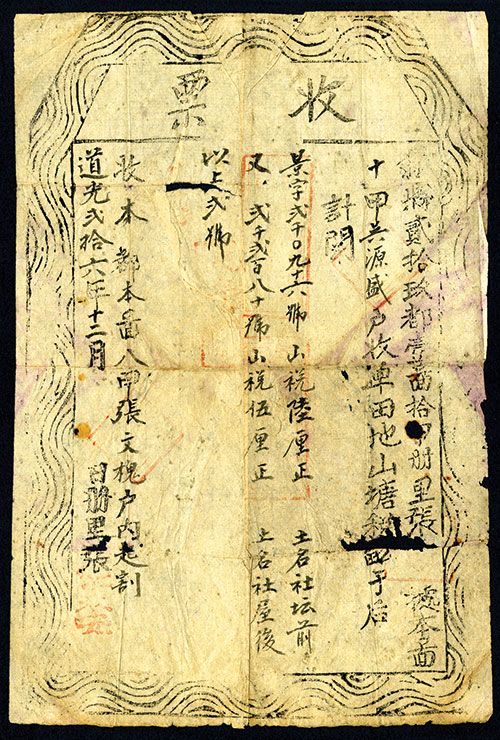 收票
貳拾玖都壹啚拾甲册里張 據本啚
十甲吳源盛户收單田地山塘于后
計開
景字弍千〇九十六號 山稅陸厘正 土名社坛前
又，弍千弍百八十號山稅伍厘正 土名社屋後
以上弍號
收本都本啚八甲張文槐户内起割
道光弍拾六年十二月 日册里張